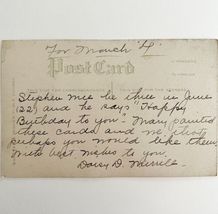 For Mouch "4"
Post Card
Stephen was three in June
(22) and he says "Happy
Birthday to you" Mary painted
these cards and we thought
perhaps you would like them.
With best wishes to you,
Daisy D. Merrill